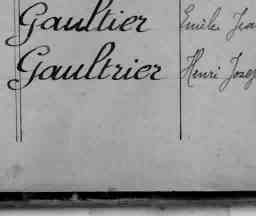 Gaultier Emile Jea
Gaultrier Henri Josep